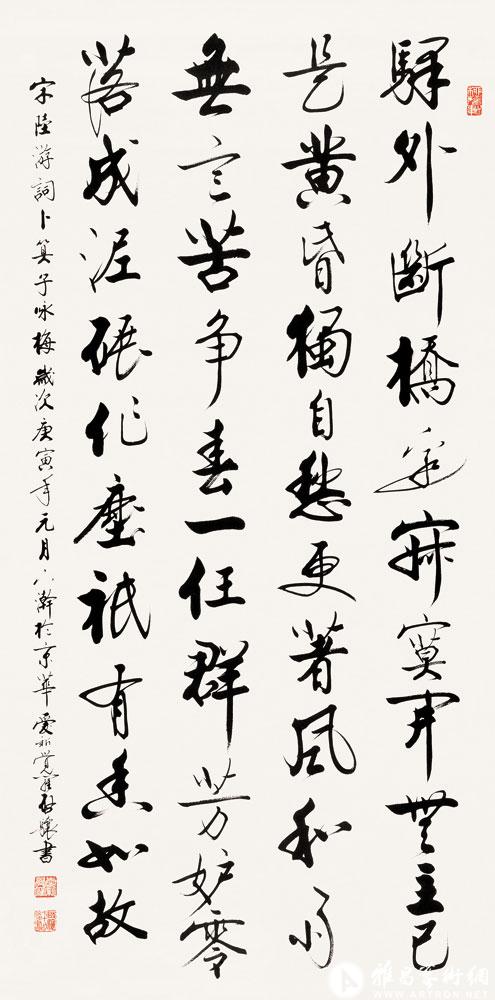 驛外斷橋邊寂寞開無主已
是黃昏獨自愁更著風和雨
無意苦争春一任群芳妒零
落成泥碾作塵祇有香如故
宋陸游詞卜算子咏梅歲次庚寅年元月下澣於京華愛新覺羅啟驤書
雅昌藝術網
WWW.ARTRON.NET